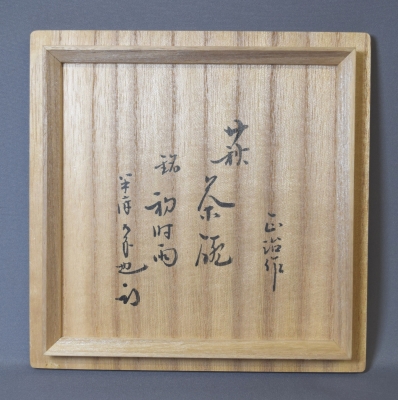 正治作
萩茶碗
銘 初時雨